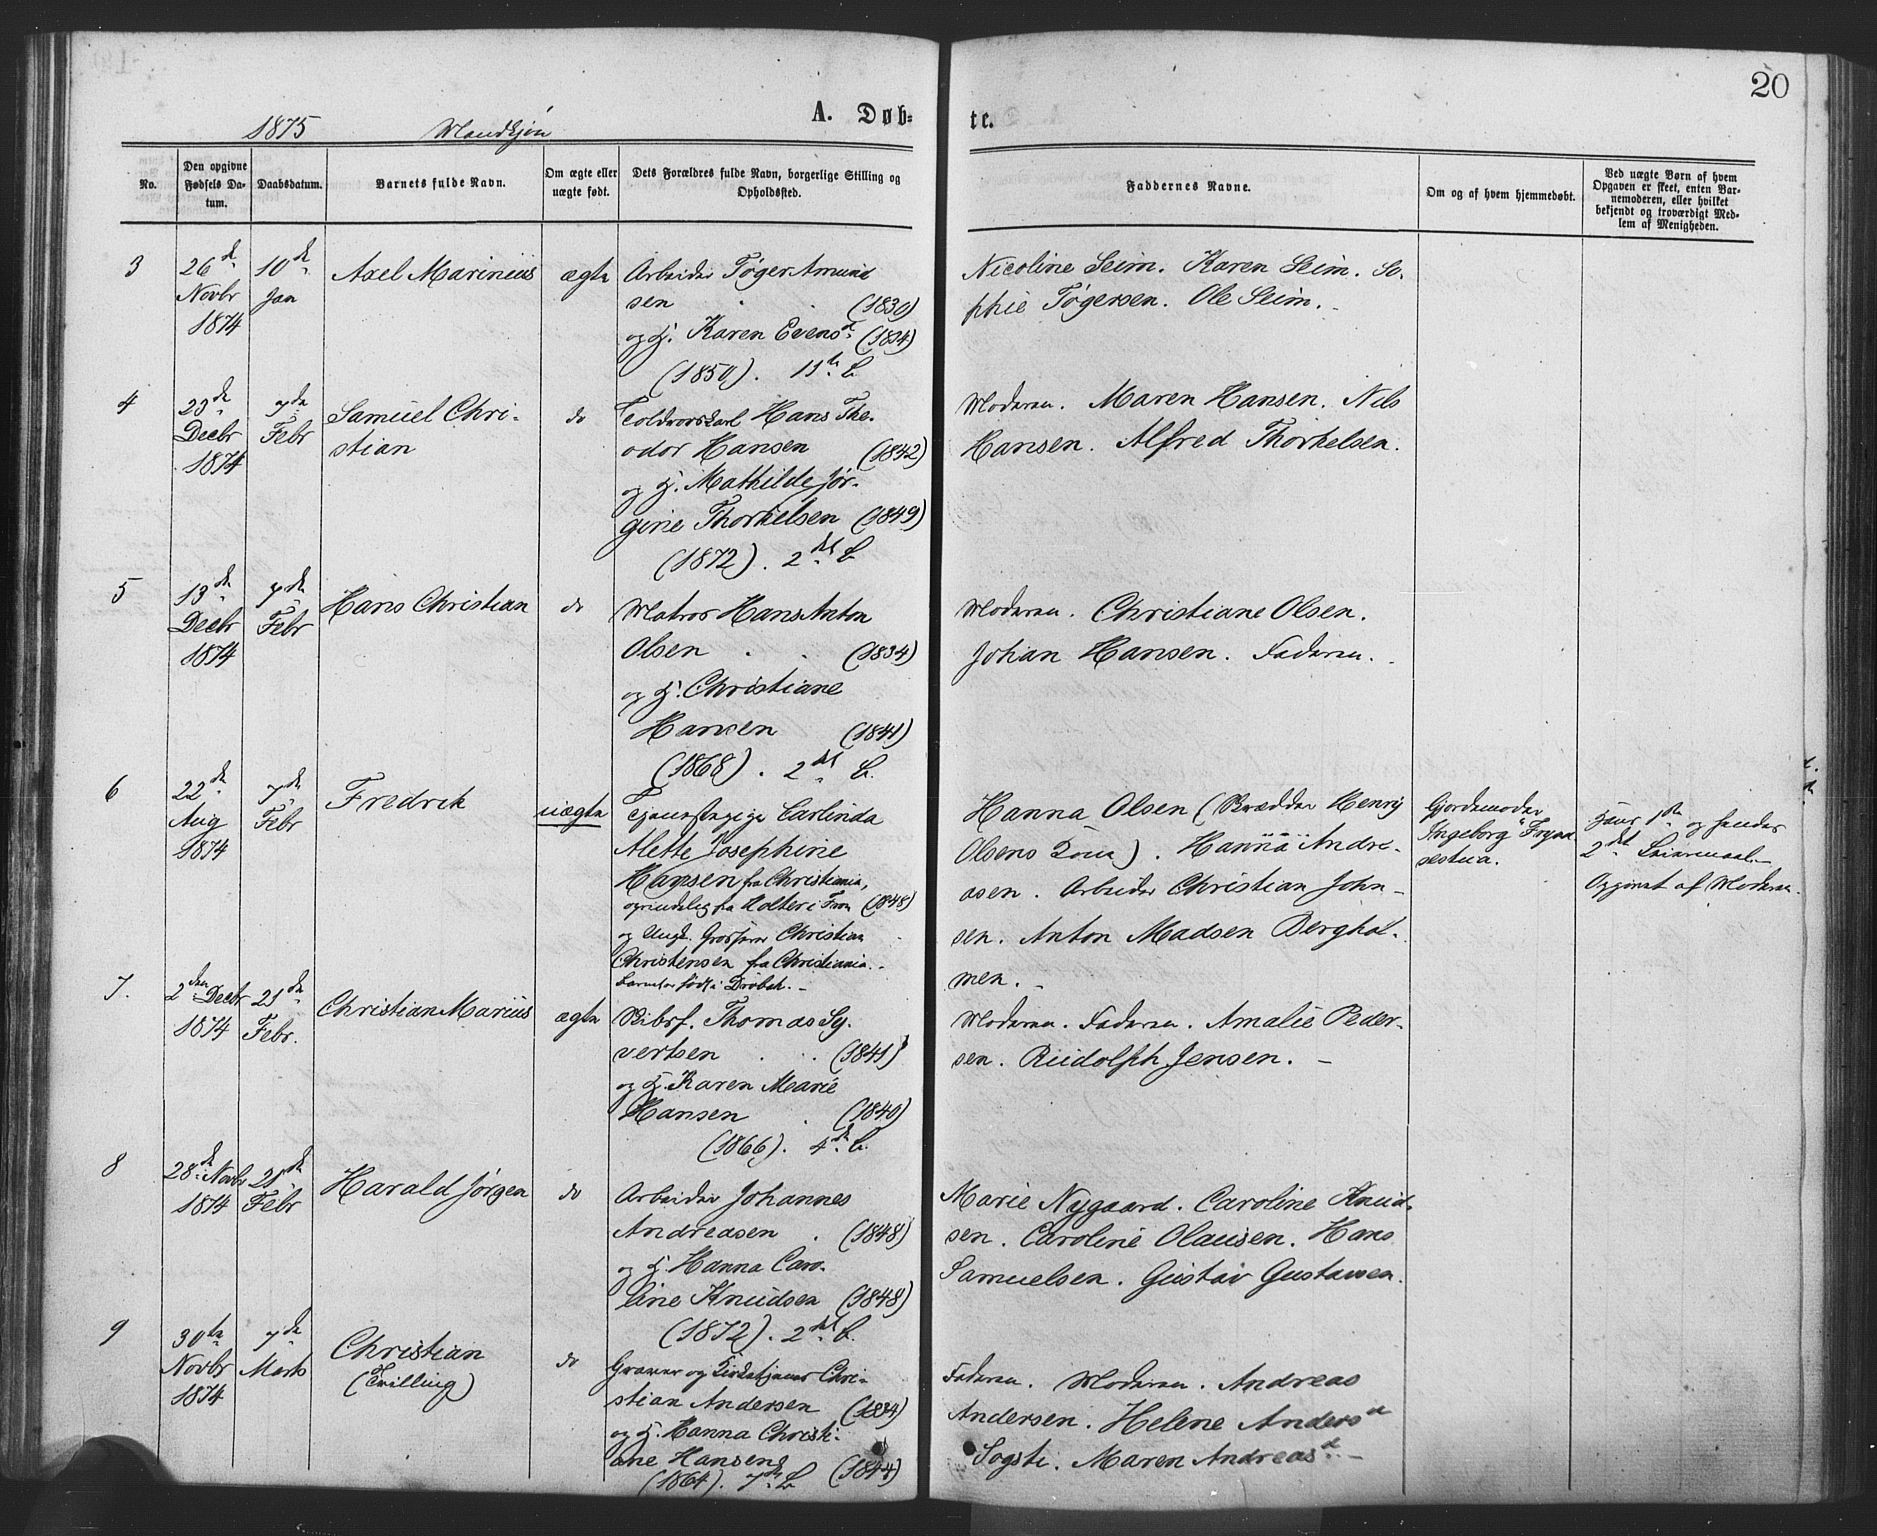 20
A. Døb-
te.
1875 Mandkjøn
No.
Den opgivne
Fødsels Da-
tum.
Daabsdatum.
Barnets fulde Navn.
Om ægte eller
uægte født.
Dets Forældres fulde Navn, borgerlige Stilling og
Opholdssted.
Faddernes Navne.
Om og af hvem hjemmedøbt.
Ved uægte Børn af hvem
Opgaven er skeet, enten Bar-
nemoderen, eller hvilket
bekjendt og troværdigt Med-
lem af Menigheden.
3
26de
Novbr
1874
10de
Jan
Axel Marinius
ægte
Arbeider Tøger Amund
sen (1830)
og H. Karen Evensd (1834)
(1850). 11te B.
Nicoline Seim. Karen Seim. So-
phie Tøgersen. Ole Seim.
4
23de
Decbr
1874
7de
Febr
Samuel Chri-
stian
do
Toldrorskarl Hans The-
odor Hansen (1842)
og H. Mathilde Jør-
gine Thorkelsen (1849)
(1872). 2det B.
Moderen. Maren Hansen. Nils
Hansen. Alfred Thorkelsen.
5
13de
Decbr
1874
7de
Febr
Hans Christian
do
Matros Hans Anton
Olsen (1834)
og H. Christiane
Hansen (1841)
(1868). 2det B.
Moderen. Christiane Olsen.
Johan Hansen. Faderen.
6
22de
Aug
1874
7de
Febr
Fredrik
uægte
Tjenestepige Carlinda
Alette Josephine
Hansen fra Christiania,
oprindelig fra Holter i Fron (1848)
og Ungk. Christian
Christensen fra Christiania.
Barnet er født i Drøbak.
Hanna Olsen (Brædder Henry
Olsens Kone). Hanna Andre-
asen. Arbeider Christian John-
sen. Anton Madsen Berghol-
men.
Gjordemoder
Ingeborg
1ste og hendes
2det Leiermaal.
Opgivet af Moderen.
7.
2den Decbr
1874
21de
Febr.
Christian Marius
ægte
Bibsf. Thomas Sy-
vertsen (1841)
og H. Karen Marie
Hansen (1840)
(1866). 4de B.
Moderen. Faderen. Amalie Peder-
sen. Rudolph Jensen.
8
28de Novbr
1874
21de
Febr
Harald Jørgen
do
Arbeider Johannes
Andreasen (1848)
og H. Hanna Caro-
line Knudsen (1848)
(1872). 2det B.
Marie Nygaard. Caroline Knud-
sen. Caroline Olausen. Hans
Samuelsen. Gustav Gustavsen.
9
30te
Novbr
1874
7de
Marts
Christian
(Tvilling)
do
Graver og Kirketjener Chri-
stian Andersen (1834)
og H. Hanna Christi-
ane Hansen (1844)
(1864). 7de B
Faderen. Moderen. Andreas
Andersen. Helene Andersd
Sogsti. Maren Andreasd